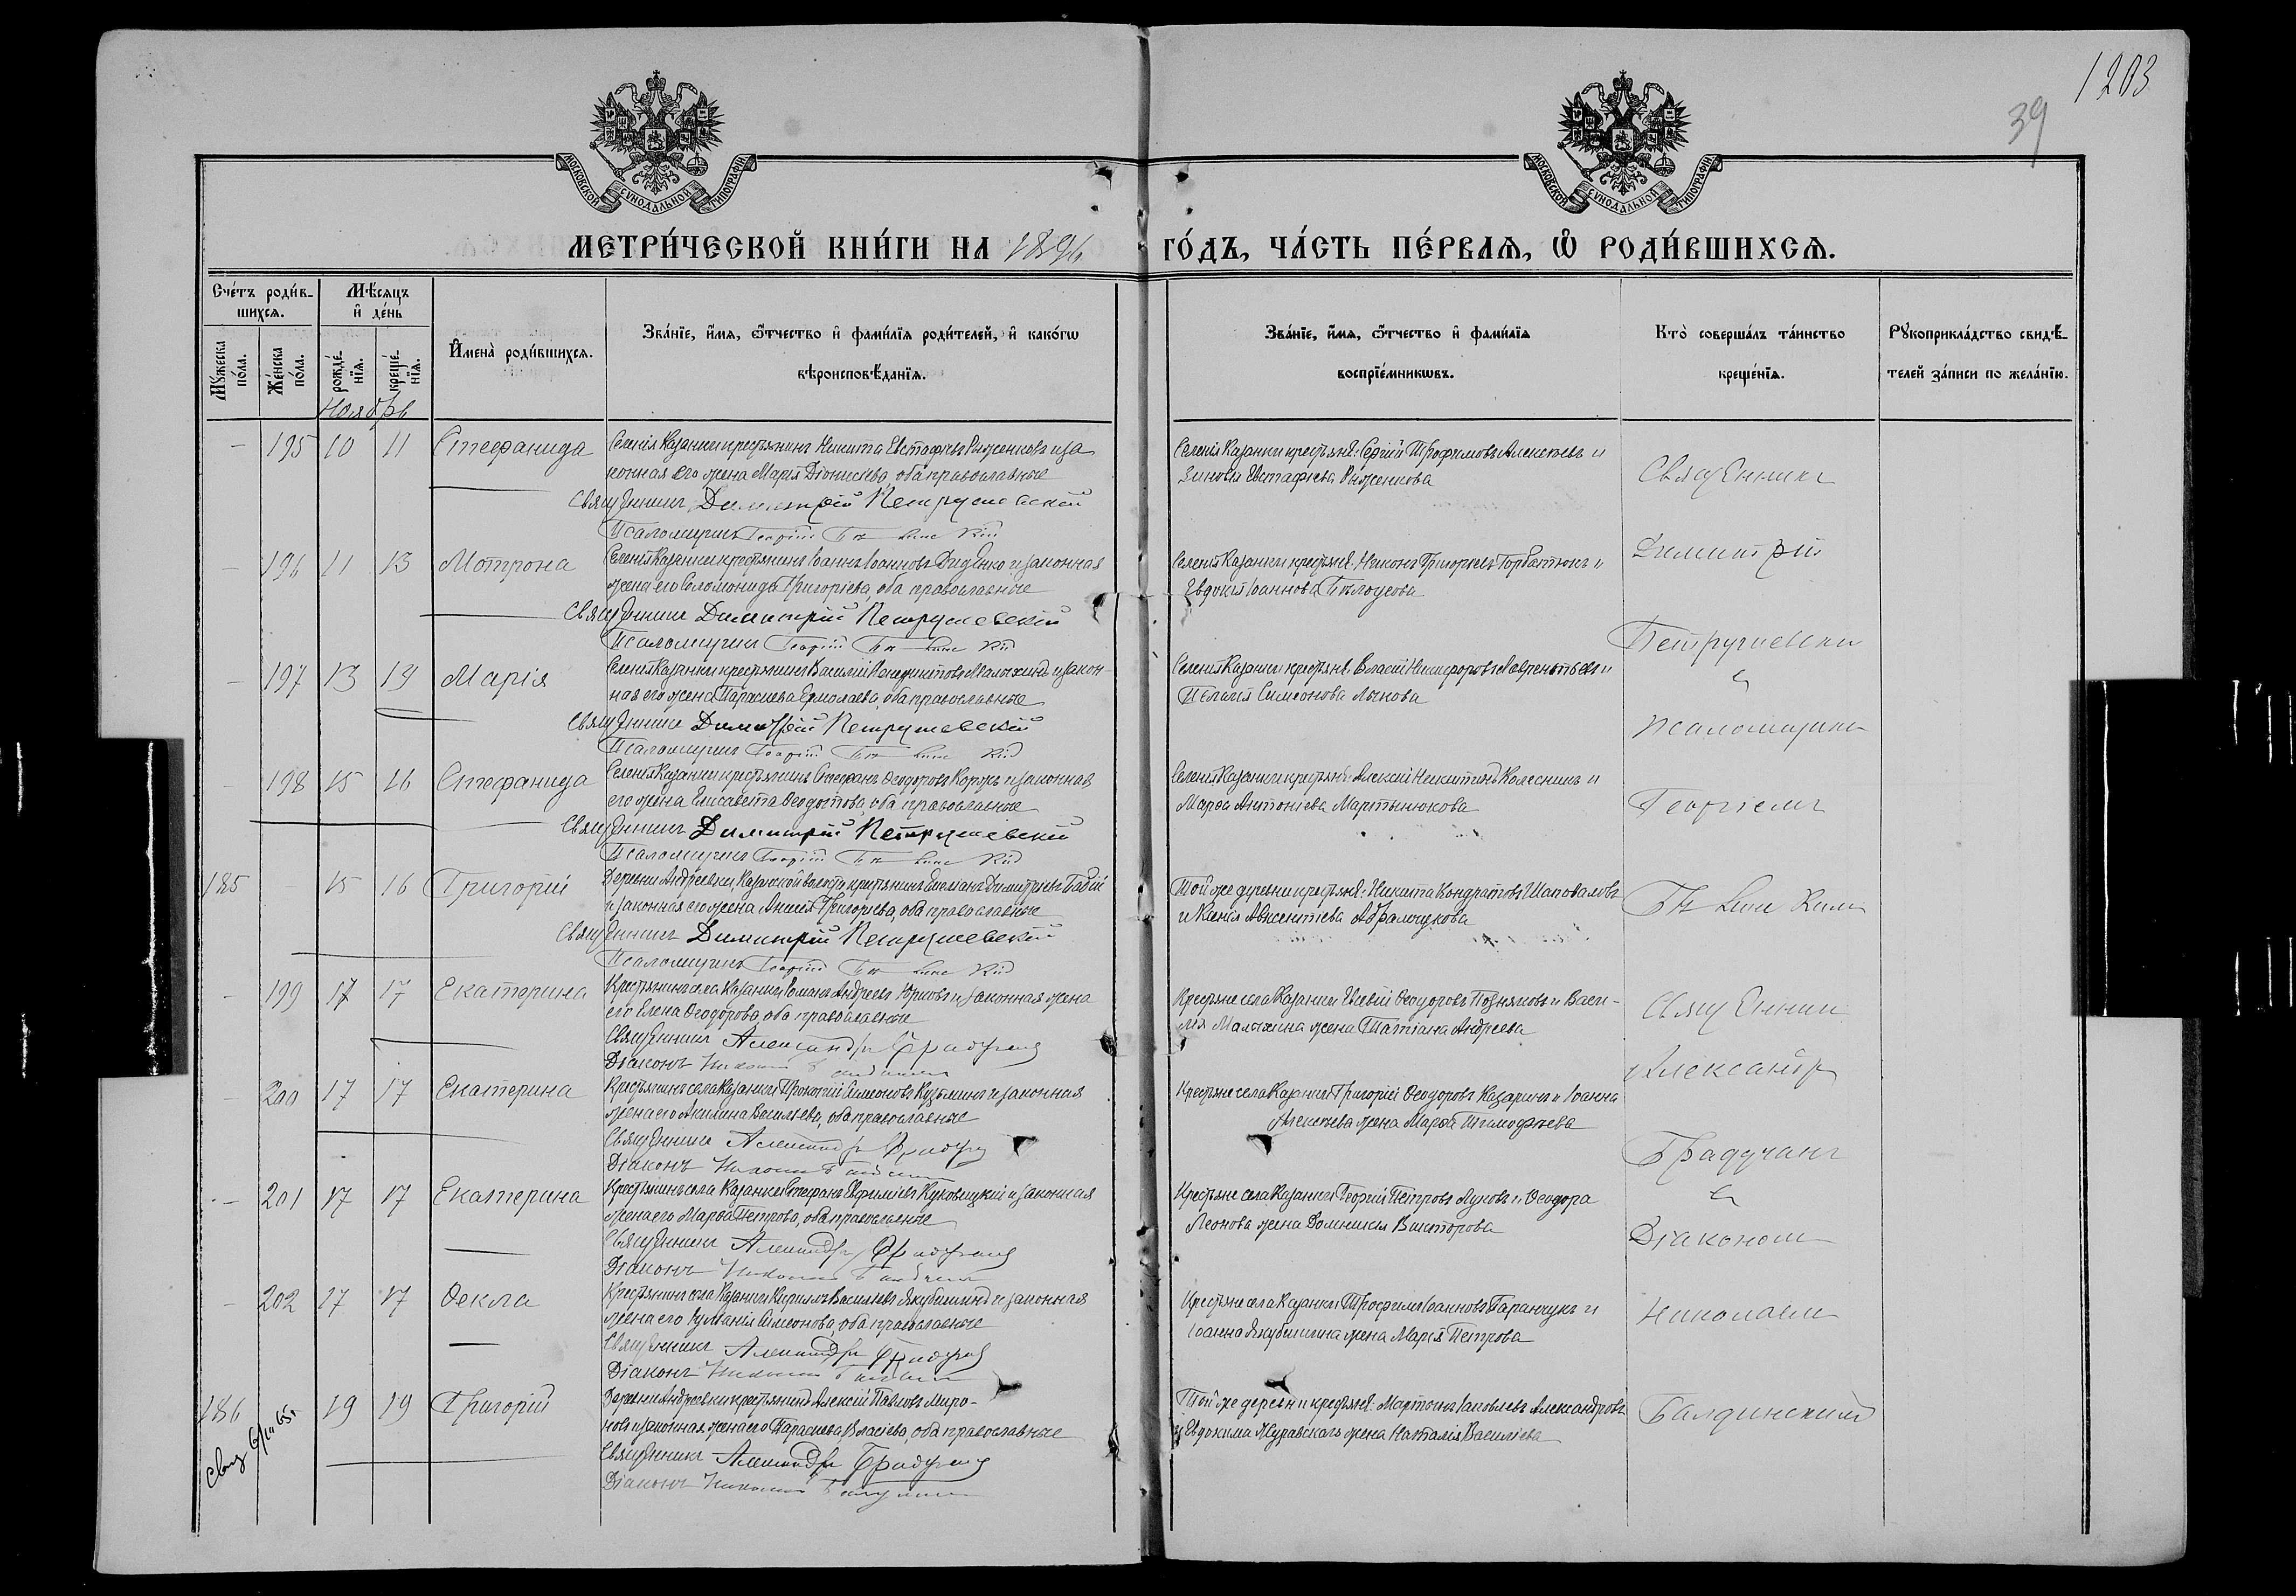 1203
39
МОСКОВСКОЙ СУНОДАЛЬНОЙ ТИПОГРАФІИ
МОСКОВСКОЙ СУНОДАЛЬНОЙ ТИПОГРАФІИ
МЕТРИ́ЧЕСКОЙ КНИ́ГИ НА 1896 ГО́ДЪ, ЧА́СТЬ ПЕ́РВАѦ, Ѡ РОДИ́ВШИХСѦ.
Сче́тъ роди́в-
шихсѧ.
Мѣ́сѧцъ
и҆ де́нь
Мꙋ́жеска по́ла.
Же́нска по́ла.
рожде́нїѧ.
креще́нїѧ.
И҆мена̀ роди́вшихсѧ.
Зва́нїе, и҆́мѧ, ѻ҆́тчество и҆ фами́лїѧ роди́телей, и҆ како́гѡ
вѣроисповѣ́данїѧ.
Зва́нїе, и҆́мѧ, ѻ҆́тчество и҆ фами́лїѧ
воспрїе́мникѡвъ.
Кто̀ соверша́лъ та́инство
креще́нїѧ.
Рꙋкоприкла́дство свидѣ́-
телей за́писи по жела́нїю.
Ноябрь
– 195 10 11 Стефанида Селенія Казанки крестьянинъ Никита Евстафіевъ Рыженковъ и за
конная его жена Марія Діонисіева, оба православные
Священникъ Димитрій Петрушевскій
Псаломщикъ Георгій
Селенія Казанки крестьяне: Сергій Трофимовъ Алексѣевъ и
Зиновія Евстафіева Рыженкова
– 196 11 13 Мотрона Селенія Казанки крестьянинъ Іоаннъ Іоанновъ Диденко и законная
жена его Соломонида Григоріева, оба православные
Священникъ Димитрій Петрушевскій
Псаломщикъ Георгій
Селенія Казанки крестьяне: Никонъ Григорьевъ Горбатюкъ и
Евдокія Іоаннова Бѣлоусова
– 197 13 19 Марія Селенія Казанки крестьянинъ Василій Малахинъ и закон-
ная его жена Параскева Ермолаева, оба православные
Священникъ Димитрій Петрушевскій
Псаломщикъ Георгій
Селенія Казанки крестьяне: Власій Никифоровъ Лаврентьевъ и
Пелагія Симеонова Лыкова
– 198 15 16 Стефанида Селенія Казанки крестьянинъ Стефанъ Ѳеодоровъ и законная
его жена Елисавета Ѳеодотова, оба православные
Священникъ Димитрій Петрушевскій
Псаломщикъ Георгій
Селенія Казанки крестьяне: Алексій Никитинъ Колесникъ и
Марѳа Антоніева Мартынюкова
185 – 15 16 Григорій Деревни Андреевки, Казанской волости крестьянинъ Димитріевъ Бабій
и законная его жена Григоріева, оба православные
Священникъ Димитрій Петрушевскій
Псаломщикъ Георгій
Той же деревни крестьяне: Никита Кондратовъ Шаповаловъ
и Ксенія Авксентіева Абрамчукова
Священникъ
Димитрій
Петрушевскій
съ
псаломщикомъ
Георгіемъ
– 199 17 17 Екатерина Крестьянинъ села Казанки Романъ Андреевъ и законная жена
его Елена Ѳеодорова, оба православные
Священникъ Александръ Брадучанъ
Діаконъ Николай
Крестьяне села Казанки Ѳеодоровъ Позняковъ и Васи-
лія Малахина жена Татіана Андреева
– 200 17 17 Екатерина Крестьянинъ села Казанки Прокопій Симеоновъ Кузьминъ и законная
жена его Акилина Васильева, оба православные
Священникъ Александръ
Діаконъ Николай
Крестьяне села Казанки Григорій Ѳеодоровъ Казаринъ и Іоанна
Алексѣева жена Марѳа Тимофѣева
– 201 17 17 Екатерина Крестьянинъ села Казанки Стефанъ Ефиміевъ и законная
жена его Марѳа Петрова, оба православные
Священникъ Александръ Брадучанъ
Діаконъ Николай
Крестьяне села Казанки Георгій Петровъ и Ѳеодора
Леонова жена Домникія Викторова
– 202 17 17 Ѳекла Крестьянинъ села Казанки Кириллъ Васильевъ Якубишинъ и законная
жена его Симеонова, оба православные
Священникъ Александръ Брадучанъ
Діаконъ Николай
Крестьяне села Казанки Трофимъ Іоанновъ Таранчукъ и
Іоанна Якубишина жена Марія Петрова
186 19 19 Григорій Деревни Андреевки крестьянинъ Алексій Павловъ Миро-
новъ и законная жена его Параскева Власіева, оба православные
Священникъ Александръ Брадучанъ
Діаконъ Николай
Той же деревни крестьяне: Мартинъ Іаковлевъ Александровъ
и Евдокима Журавскаго жена Наталія Василіева
Священникъ
Александръ
Брадучанъ
съ
Діакономъ
Николаемъ
Балдинскимъ